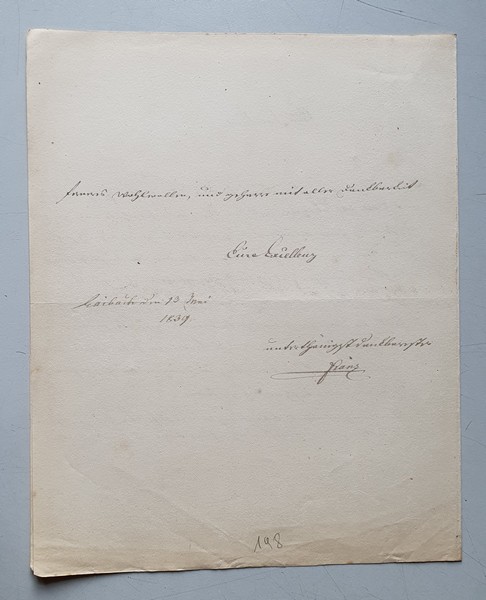 ferneres Wohlwollen, und geharre mit aller Dankbarkeit
Eure Excellenz
Laibach den 13 Mai
1839
unterthänigst dankbarster
198